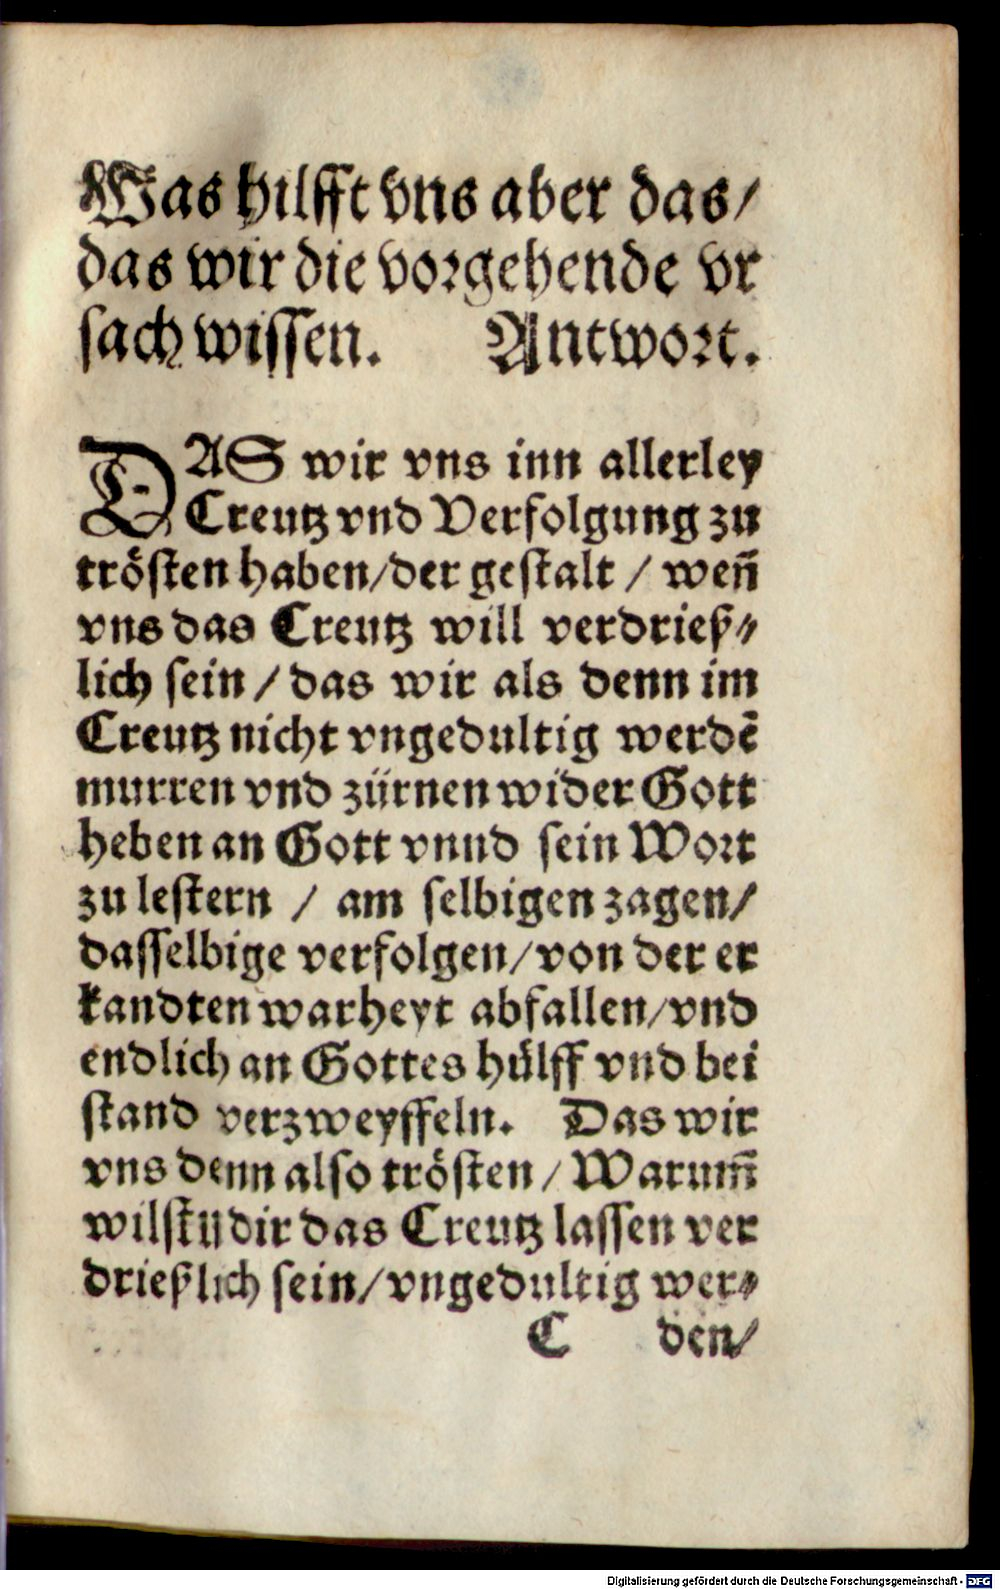 Was hilfft vns aber das/
das wir die vorgehende vr
sach wissen. Antwort.
DAS wir vns inn allerley
Creutz vnd Verfolgung zu
trösten haben/der gestalt / weñ
vns das Creutz will verdrieß⸗
lich sein / das wir als denn im
Creutz nicht vngedultig werdē
murren vnd zürnen wider Gott
heben an Gott vnnd sein Wort
zu lestern / am selbigen zagen/
dasselbige verfolgen/von der er
kandten warheyt abfallen/vnd
endlich an Gottes hülff vnd bei
stand verzweyffeln. Das wir
vns denn also trösten / Warum̄
wilstu dir das Creutz lassen ver
drießlich sein/vngedultig wer⸗
C den/
Digitalisierung gefördert durch die Deutsche Forschungsgemeinschaft - DFG